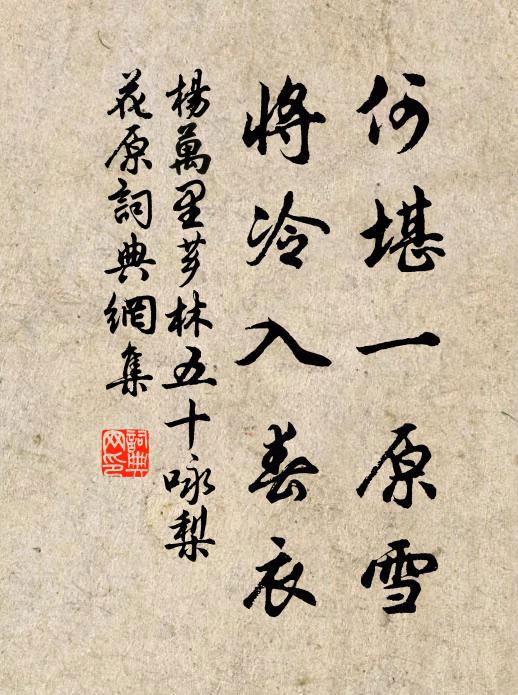 何堪一原雪
将冷入春衣
楊萬里芗林五十咏梨
花原詞典網集
詞典網印